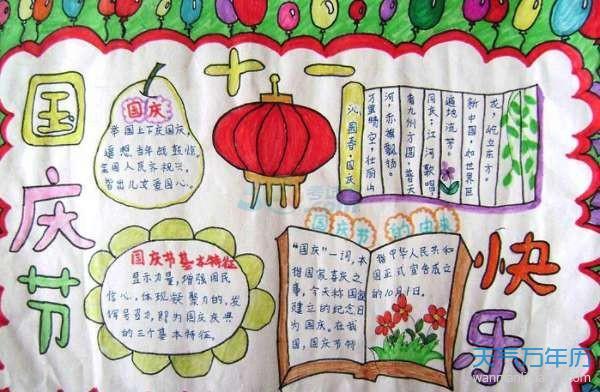 国庆节
十一
国庆
举国上下庆国庆，
遥想当年战鼓惊。
全国人民齐祝兴，
皆出儿女爱国心。
沁园春·国庆
万里晴空，壮丽山
河，赤旗飘扬。
看九州方圆，普天
国庆；江河歌唱，
遍地流芳。
新中国，如世界巨
龙，屹立东方。
国庆节基本特征
显示力量，增强国民
信心，体现凝聚力的，发
挥号召力，即为国庆庆典
的三个基本特征。
国庆节 的由来
“国庆”一词，本
指国家喜庆之
事，今天称国家
建立的纪念日
为国庆。在我
国，国庆节特
指中华人民共和
国正式宣告成立
的10月1日。
快乐
天气万年历